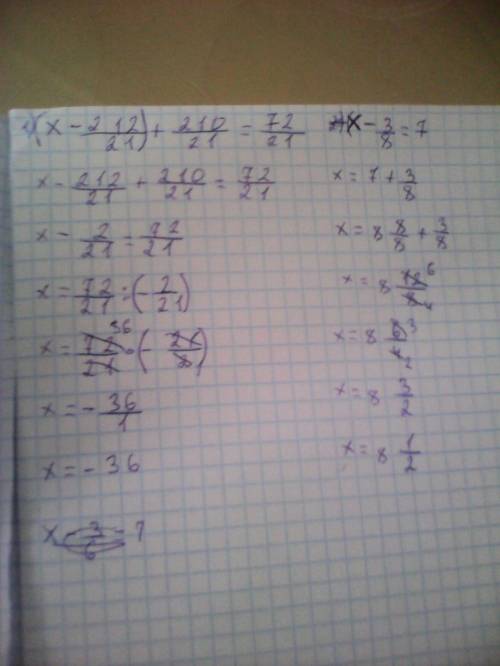 1) (x - 212/21) + 210/21 = 72/21
x - 212/21 + 210/21 = 72/21
x - 2/21 = 72/21
x = 72/21 : (- 2/21)
x = 72/21 36 · (- 21/2 1)
x = - 36/1
x = - 36
x - 3/6 = 7
x - 3/8 = 7
x = 7 + 3/8
x = 8 8/8 + 3/8
x = 8 6/4
x = 8 3/2
x = 8 3/2
x = 8 1/2